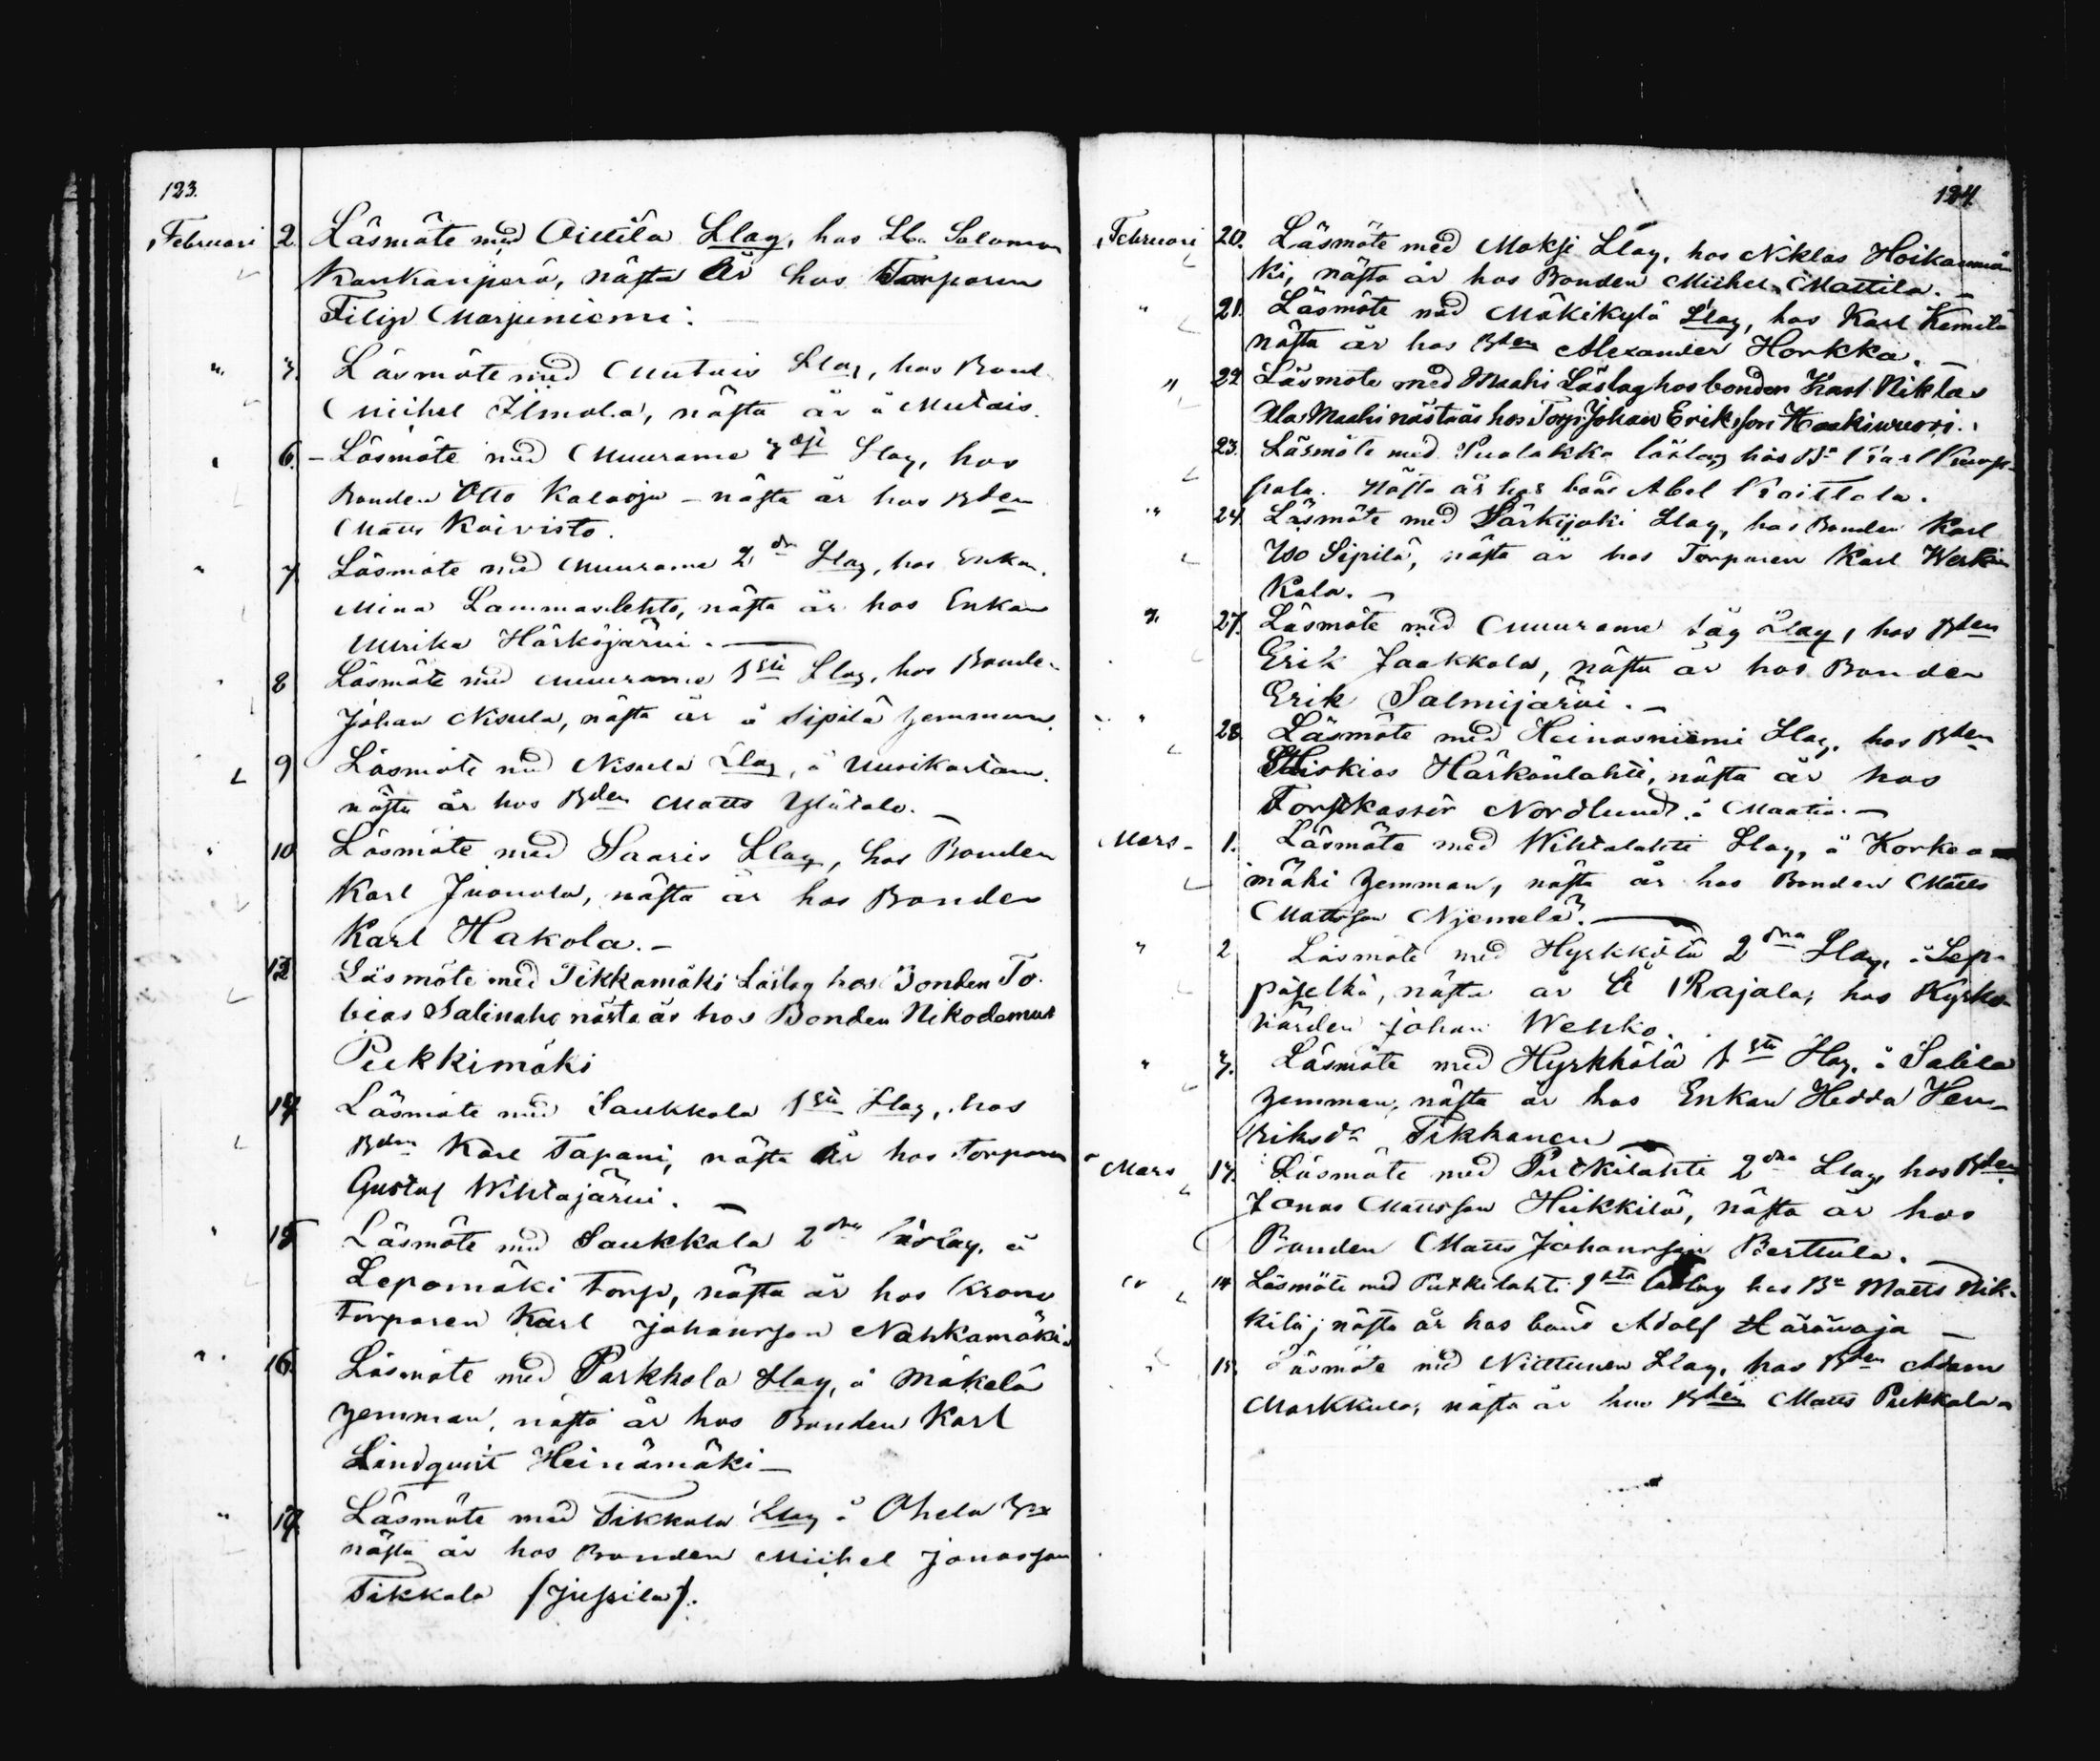 123.
Februari 2. Läsmöte med Oittila Llag, hos Lbn Salomon
Kankanperä, näſta År hos Torparen
Filip Marjoniemi.
" 3. Läsmöte med Mutais Llag, hos Bond.
Michel Ilmola, näſta år å Mutais.
" 6. - Läsmöte med Muurame 3dje Llag, hos
Bonden Otto Kalaoja - näſta år hos Bden
Matts Koivisto.
" 7. Läsmöte med Muurame 2dra Llag, hos Enkan
Mina Lammaslehto, näſta år hos Enkan
Ulrika Härköjärvi. -
" 8 Läsmöte med Muurame 1sta Llag, hos Bonden
Johan Nisula, näſta år å Sipilä hemman.
9 Läsmöte med Nisula Llag, å Uusikartano.
näſta år hos Bden Matts Ylitalo. -
" 10 Läsmöte med Saaris Llag, hos Bonden
Karl Juonola, näſta år hos Bonden
Karl Hakola. -
13 Läsmöte med Tikkamäki Läslag hos Bonden To-
bias Salinaho nästa år hos Bonden Nikodemus
Pukkimäki
14 Läsmöte med Saukkola 1sta Llag, hos
Bden Karl Tapani, näſta År hos Torparen
Gustaf Wihtajärvi. -
" 15 Läsmöte med Saukkola 2dra läslag, å
Lepomäki Torp, näſta år hos Krono
torparen Karl Johansson Nahkamäki.
" 16. Läsmöte med Parkkola Llag, å Mäkelä
hemman, näſta år hos Bonden Karl
Lindqvist Heinämäki -
" 17. Läsmöte med Tikkala Llag å Ohela
näſta år hos Bonden Michel Jonasſon
Tikkala (Juſsila).
124
Februari 20. Läsmöte med Moksi Llag, hos Niklas Hoikanmä
ki, näſta år hos Bonden Michel Mattila. -
" 21. Läsmöte med Mäkikylä Llag, hos Karl Kemilä
näſta år hos Bden Alexander Horkka. -
" 22 Läsmöte med Maahi Läslag hos bonden Karl Niklas
Ala Maahi nästa år hos Torp. Johan Eriksſon Haukivuori.
23. Läsmöte med Sualakka läslag hos Bn Karl Knap-
pala. Näſta år hos bond Abel Kaittala.
" 24. Läsmöte med Särkijoki Llag, hos Bonden Karl
Iso Sipilä, näſta år hos Torparen Karl Werkin
Kala. -
" 27. Läsmöte med Muurame Säg Llag, hos Bden
Erik Jaakkola, näſta år hos Bonden
Erik Salmijärvi. -
" 28. Läsmöte med Heinosniemi Llag, hos Bden
Hiskias Härkönlahti, näſta år hos
Nordlund å Maatia. -
Mars - 1. Läsmöte med Wihtalahti Llag, å Korkea
mäki hemman, näſta år hos Bonden Matts
Mattsſon Njemelä. -
" 2 Läsmöte med Hyrkkölä 2dra Llag, å Lep-
päſelkä, näſta år å Rajala, hos Kyrko-
värden Johan Wehko.
" 3. Läsmöte med Hyrkkölä 1sta Llag, å Salila
hemman, näſta år hos Enkan Hedda Hen-
riksdr Tikkanen -
Mars 14. Läsmöte med Putkilahti 2dra Llag, hos Bden
Jonas Mattsſon Heikkilä, näſta år hos
Bonden Matts Johansſon Berttula. -
" 14 Läsmöte med Putkilahti 1sta läslag hos Bn Matts Nik-
kilä; näſta år hos bond Adolf Häränoja -
" 15. Läsmöte med Niittunen Llag, hos Bden Adam
Markkula, näſta år hos Bden Matts Pukkala -